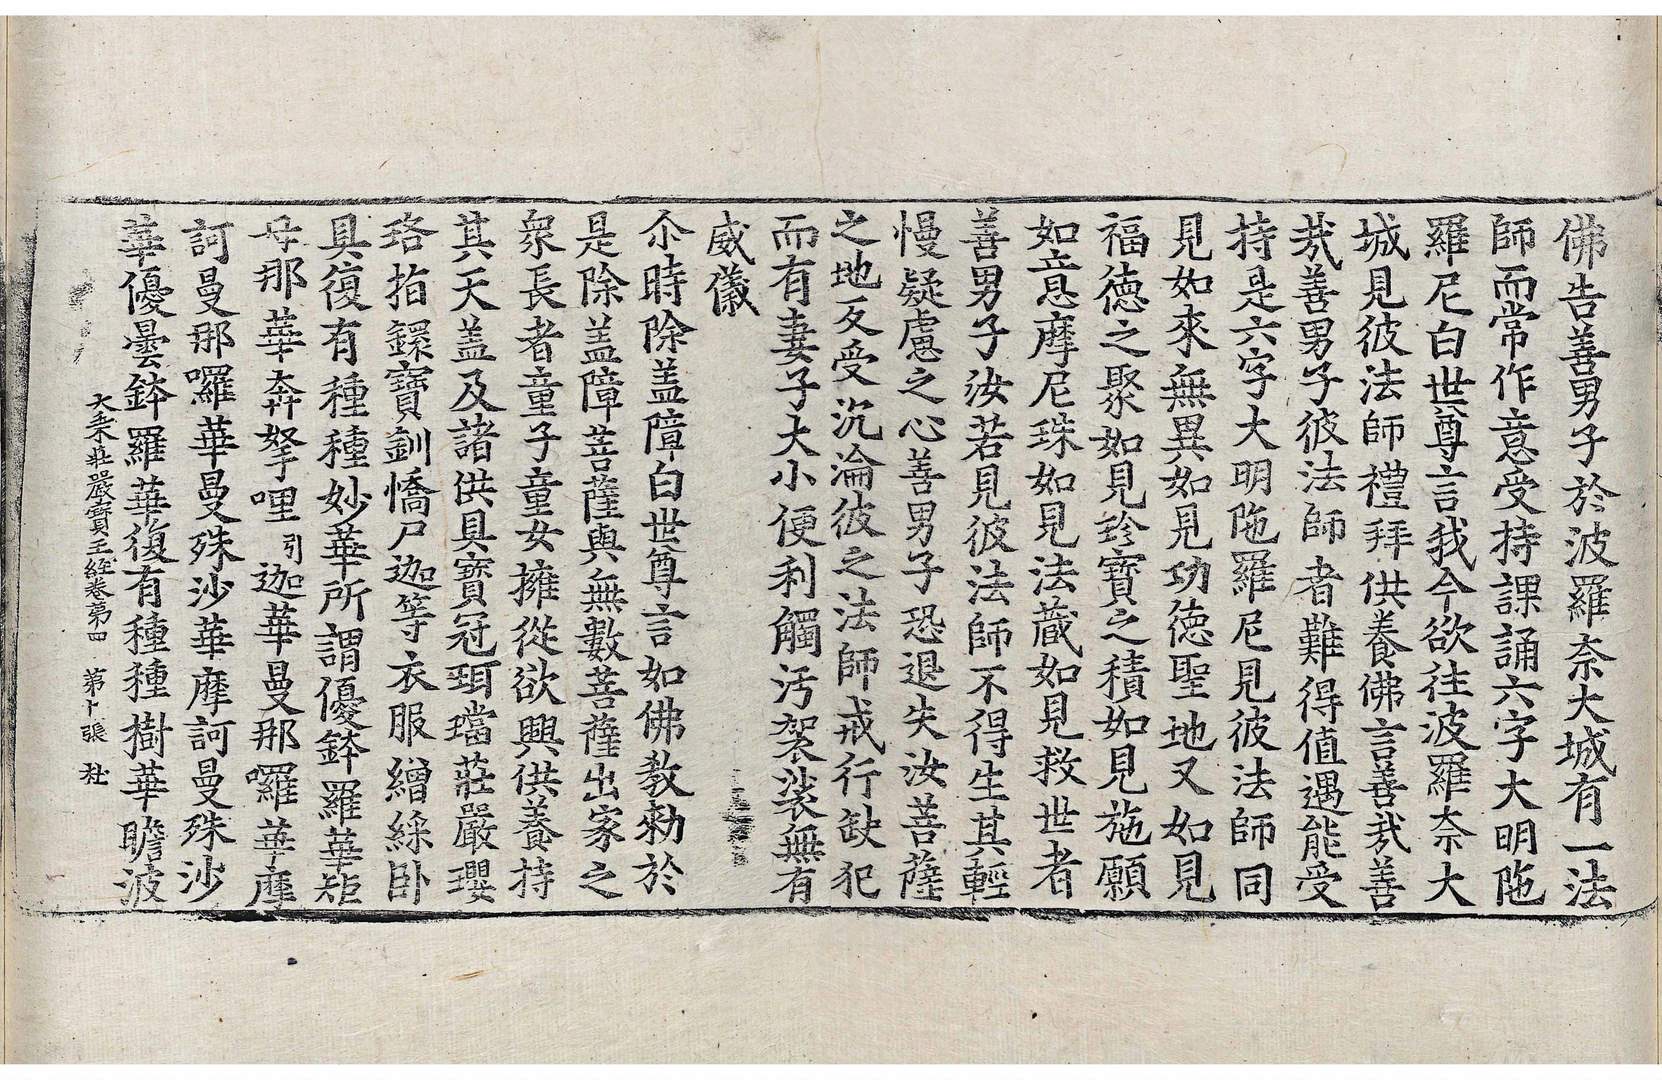 佛告善男子於波羅奈大城有一法
師而常作意受持課誦六字大明陁
羅尼白世尊言我今欲往波羅奈大
城見彼法師禮拜供養佛言善哉善
哉善男子彼法師者難得值遇能受
持是六字大明陁羅尼見彼法師同
見如來無異如見功德聖地又如見
福德之聚如見珍寶之積如見施願
如意摩尼珠如見法藏如見救世者
善男子汝若見彼法師不得生其輕
慢疑慮之心善男子恐退失汝菩薩
之地反受沉淪彼之法師戒行缺犯
而有妻子大小便利觸汚袈裟無有
威儀
尒時除盖障白世尊言如佛教勑於
是除盖障菩薩與無數菩薩出家之
衆長者童子童女擁從欲興供養持
其天盖及諸供具寶冠珥璫莊嚴瓔
珞指鐶寶釧憍尸迦等衣服繒綵卧
具復有種種妙華所謂優鉢羅華矩
母那華奔拏哩引迦華曼那囉華摩
訶曼那囉華曼殊沙華摩訶曼殊沙
華優曇鉢羅華復有種種樹華瞻波
大乘莊嚴寶王經卷第四 第十張 杜